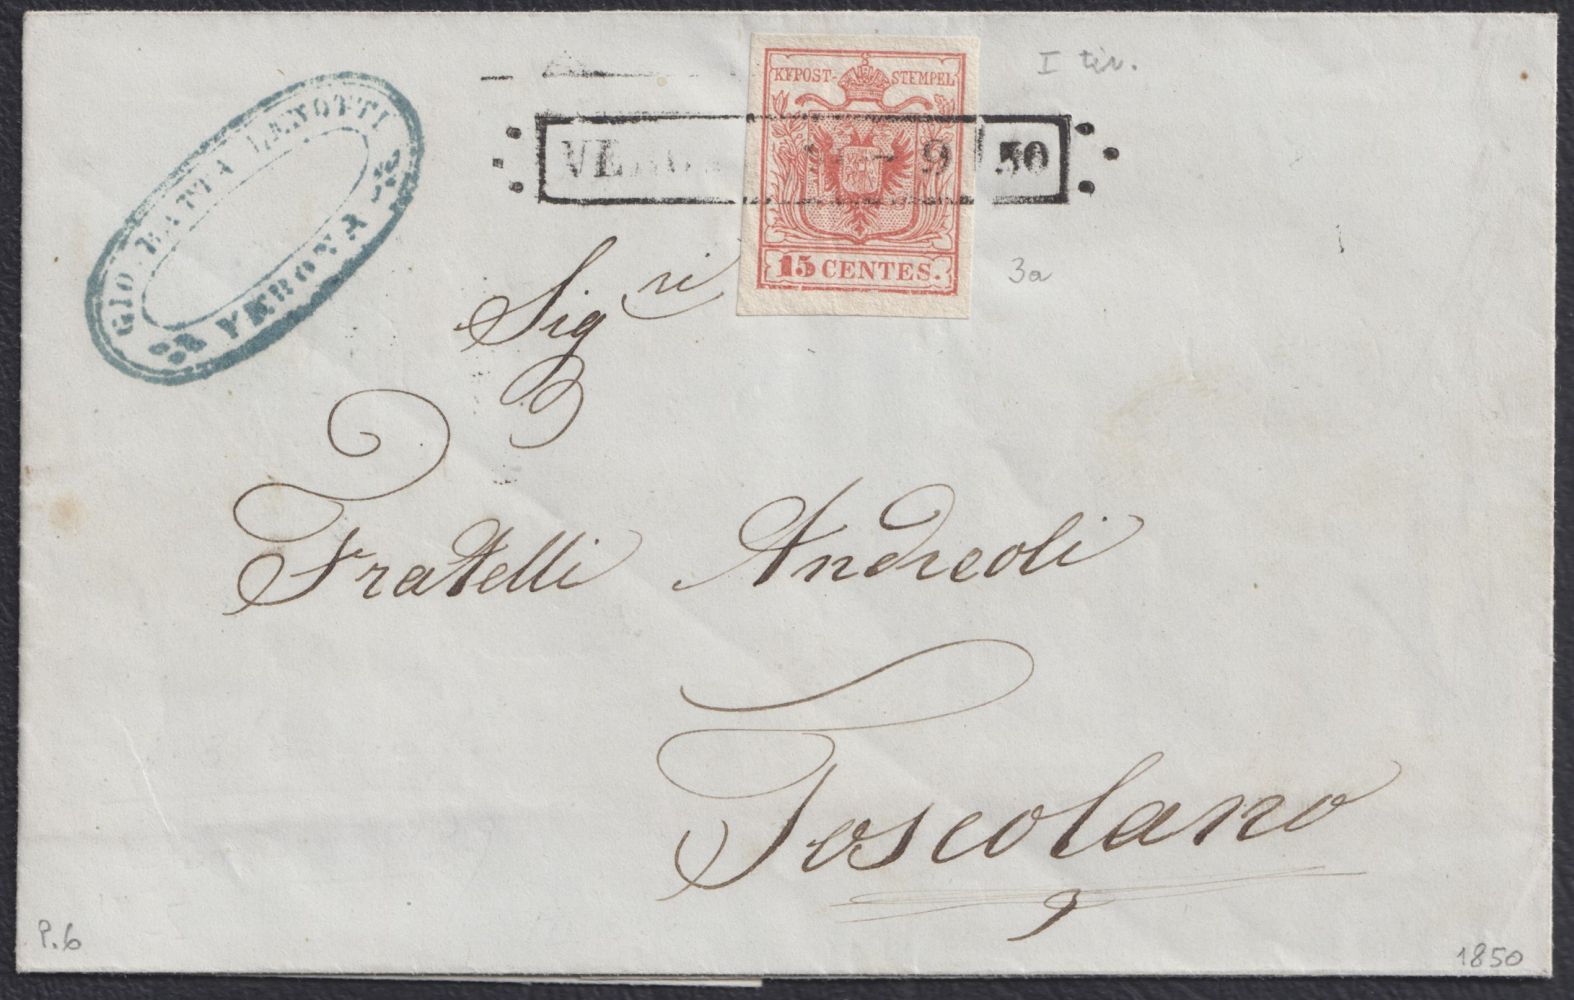 GIO. BATTA ZENOTTI
VERONA
KKPOST-STEMPEL
15 CENTES.
9
50
I tir.
3a
Sig.ri
Fratelli Andreoli
Toscolano
P.6
1850